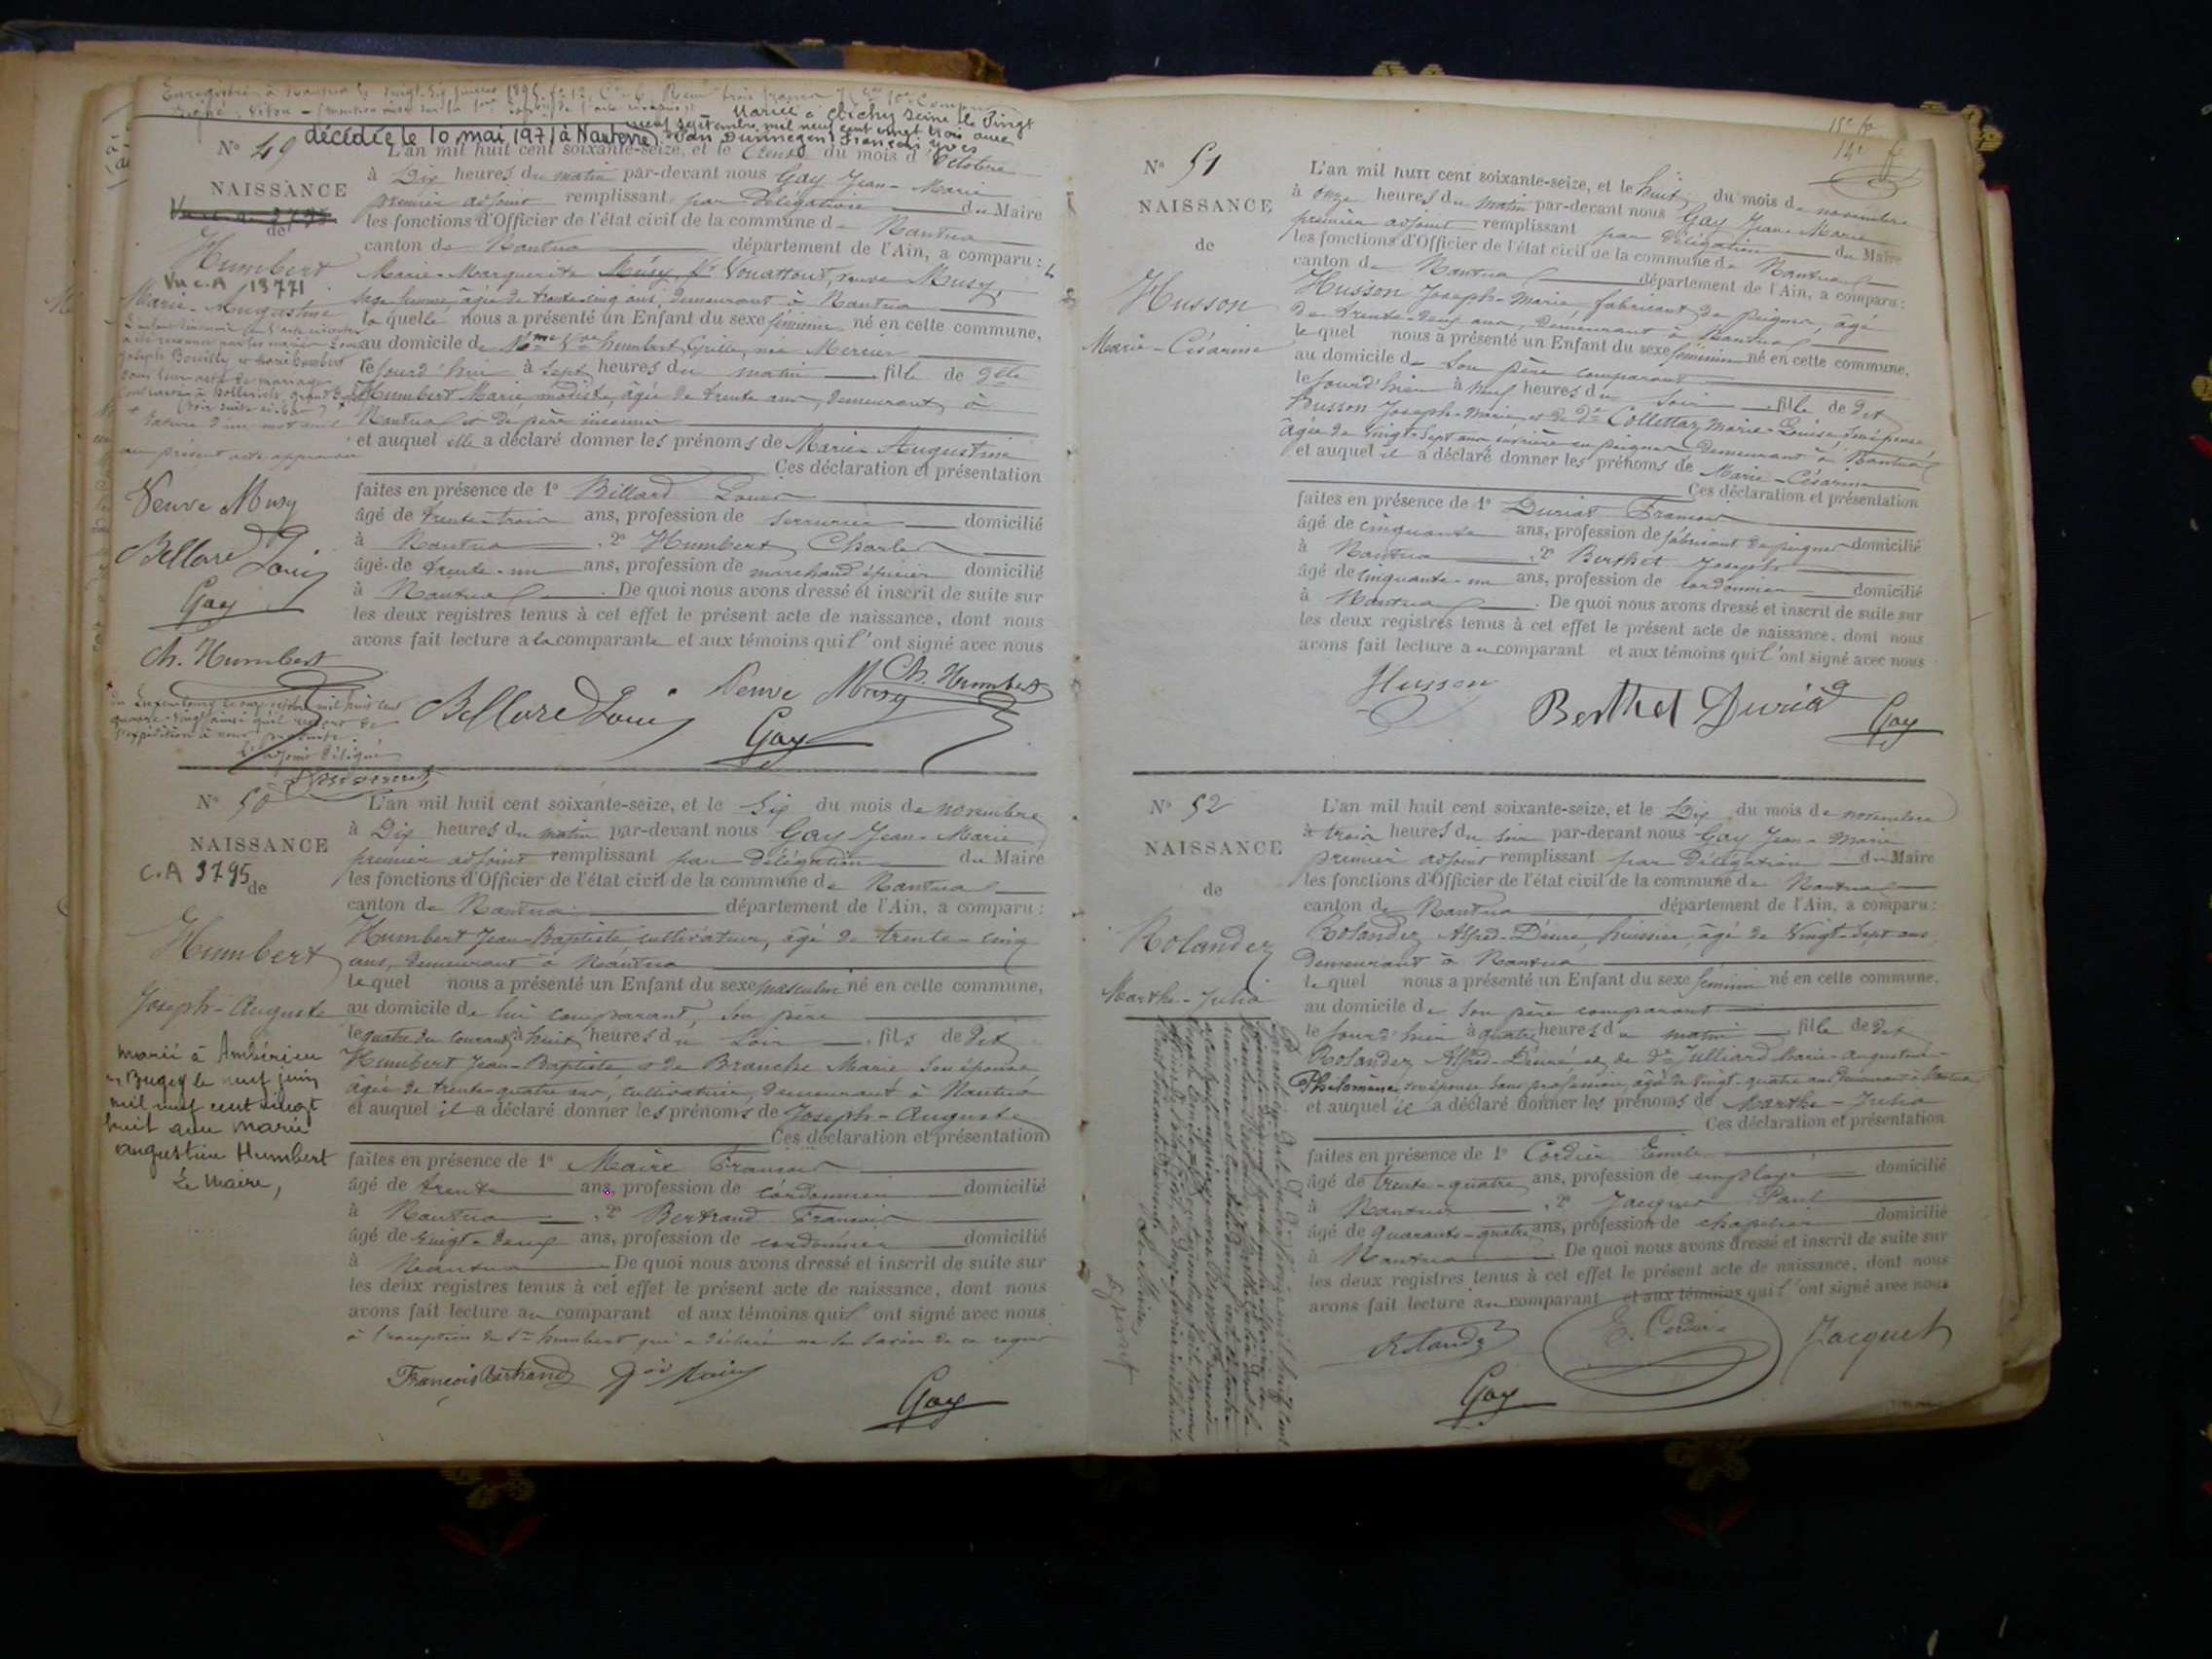 décédée le 10 mai 1971 à Nanterre
Mariée à Clichy Seine le vingt
neuf septembre mil neuf cent vingt trois avec
François Yves
N° 49
NAISSANCE
de
Humbert
Vu C.A 13771
Marie-Augustine
L'an mil huit cent soixante-seize, et le trente du mois d'octobre
à Dix heures du matin par-devant nous Gay Jean-Marie
premier adjoint remplissant par Délégation du Maire
les fonctions d'Officier de l'état civil de la commune de Nantua
canton de Nantua département de l'Ain, a comparu : 
Marie-Marguerite Musy, veuve Musy,
sage femme, âgée de trente cinq ans, demeurant à Nantua
laquelle nous a présenté un Enfant du sexe féminin né en cette commune,
au domicile de Mme Vve Humbert née Mercier
le jourd'hui à sept heures du matin fille de Dlle
Humbert Marie, modiste, âgée de trente ans, demeurant à
Nantua et de père inconnu
et auquel elle a déclaré donner les prénoms de Marie Augustine
Ces déclaration et présentation
faites en présence de 1° Billard Louis
âgé de trente trois ans, profession de serrurier domicilié
à Nantua , 2° Humbert Charles
âgé de trente-un ans, profession de marchand épicier domicilié
à Nantua . De quoi nous avons dressé et inscrit de suite sur
les deux registres tenus à cet effet le présent acte de naissance, dont nous
avons fait lecture à la comparante et aux témoins qui l'ont signé avec nous
Veuve Musy
Bellard Louis
Gay
Ch. Humbert
Bellard Louis Veuve Musy Ch. Humbert
Gay
N° 50
NAISSANCE
C.A 3795
de
Humbert
Joseph-Auguste
Marié à Ambérieu
en Bugey le neuf juin
mil neuf cent vingt
huit avec Marie
Augustine Humbert
Le Maire,
L'an mil huit cent soixante-seize, et le Six du mois de novembre
à Dix heures du matin par-devant nous Gay Jean-Marie
premier adjoint remplissant par Délégation du Maire
les fonctions d'Officier de l'état civil de la commune de Nantua
canton de Nantua département de l'Ain, a comparu :
Humbert Jean-Baptiste cultivateur, âgé de trente-cinq
ans, demeurant à Nantua
lequel nous a présenté un Enfant du sexe masculin né en cette commune,
au domicile de lui comparant, son père
le quatre du courant à huit heures du soir fils de Dit
Humbert Jean-Baptiste et de Branche Marie son épouse
âgée de trente-quatre ans, cultivatrice, demeurant à Nantua
et auquel il a déclaré donner les prénoms de Joseph-Auguste
Ces déclaration et présentation
faites en présence de 1° Maire François
âgé de trente ans, profession de cordonnier domicilié
à Nantua , 2° Bertrand François
âgé de vingt-deux ans, profession de cordonnier domicilié
à Nantua De quoi nous avons dressé et inscrit de suite sur
les deux registres tenus à cet effet le présent acte de naissance, dont nous
avons fait lecture au comparant et aux témoins qui l'ont signé avec nous
à l'exception du Sr Humbert qui a déclaré ne le savoir de ce requis
François Bertrand
Gay
N° 51
NAISSANCE
de
Husson
Marie-Césarine
L'an mil huit cent soixante-seize, et le huit du mois de novembre
à onze heures du matin par-devant nous Gay Jean-Marie
premier adjoint remplissant par Délégation du Maire
les fonctions d'Officier de l'état civil de la commune de Nantua
canton de Nantua département de l'Ain, a comparu :
Husson Joseph-Marie, fabricant de peignes, âgé
de trente-deux ans, demeurant à Nantua
lequel nous a présenté un Enfant du sexe féminin né en cette commune,
au domicile de son père comparant
le jourd'hier à neuf heures du soir fille de Dit
Husson Joseph-Marie, et de De Collettaz Marie-Louise son épouse
âgée de vingt-sept ans ouvrière en peignes demeurant à Nantua
et auquel il a déclaré donner les prénoms de Marie-Césarine
Ces déclaration et présentation
faites en présence de 1° Duriat François
âgé de cinquante ans, profession de fabricant de peignes domicilié
à Nantua , 2° Berthet Joseph
âgé de cinquante-un ans, profession de cordonnier domicilié
à Nantua . De quoi nous avons dressé et inscrit de suite sur
les deux registres tenus à cet effet le présent acte de naissance, dont nous
avons fait lecture au comparant et aux témoins qui l'ont signé avec nous
Husson Berthet Duriat Gay
N° 52
NAISSANCE
de
Rolandez
Marthe-Julia
L'an mil huit cent soixante-seize, et le Dix du mois de novembre
à trois heures du soir par-devant nous Gay Jean-Marie
premier adjoint remplissant par Délégation du Maire
les fonctions d'Officier de l'état civil de la commune de Nantua
canton de Nantua département de l'Ain, a comparu :
Rolandez Alfred-Désiré, huissier, âgé de vingt-sept ans,
demeurant à Nantua
lequel nous a présenté un Enfant du sexe féminin né en cette commune,
au domicile de son père comparant
le jourd'hier à quatre heures du matin fille de Dit
Rolandez Alfred-Désiré et de De Julliard Marie-Augustine-
Philomène son épouse sans profession, âgée de vingt-quatre ans demeurant à Nantua
et auquel il a déclaré donner les prénoms de Marthe-Julia
Ces déclaration et présentation
faites en présence de 1° Cordier Emile
âgé de trente-quatre ans, profession de employé domicilié
à Nantua , 2° Jacquet Paul
âgé de quarante-quatre ans, profession de chapelier domicilié
à Nantua . De quoi nous avons dressé et inscrit de suite sur
les deux registres tenus à cet effet le présent acte de naissance, dont nous
avons fait lecture au comparant et aux témoins qui l'ont signé avec nous
Rolandez E. Cordier Jacquet
Gay